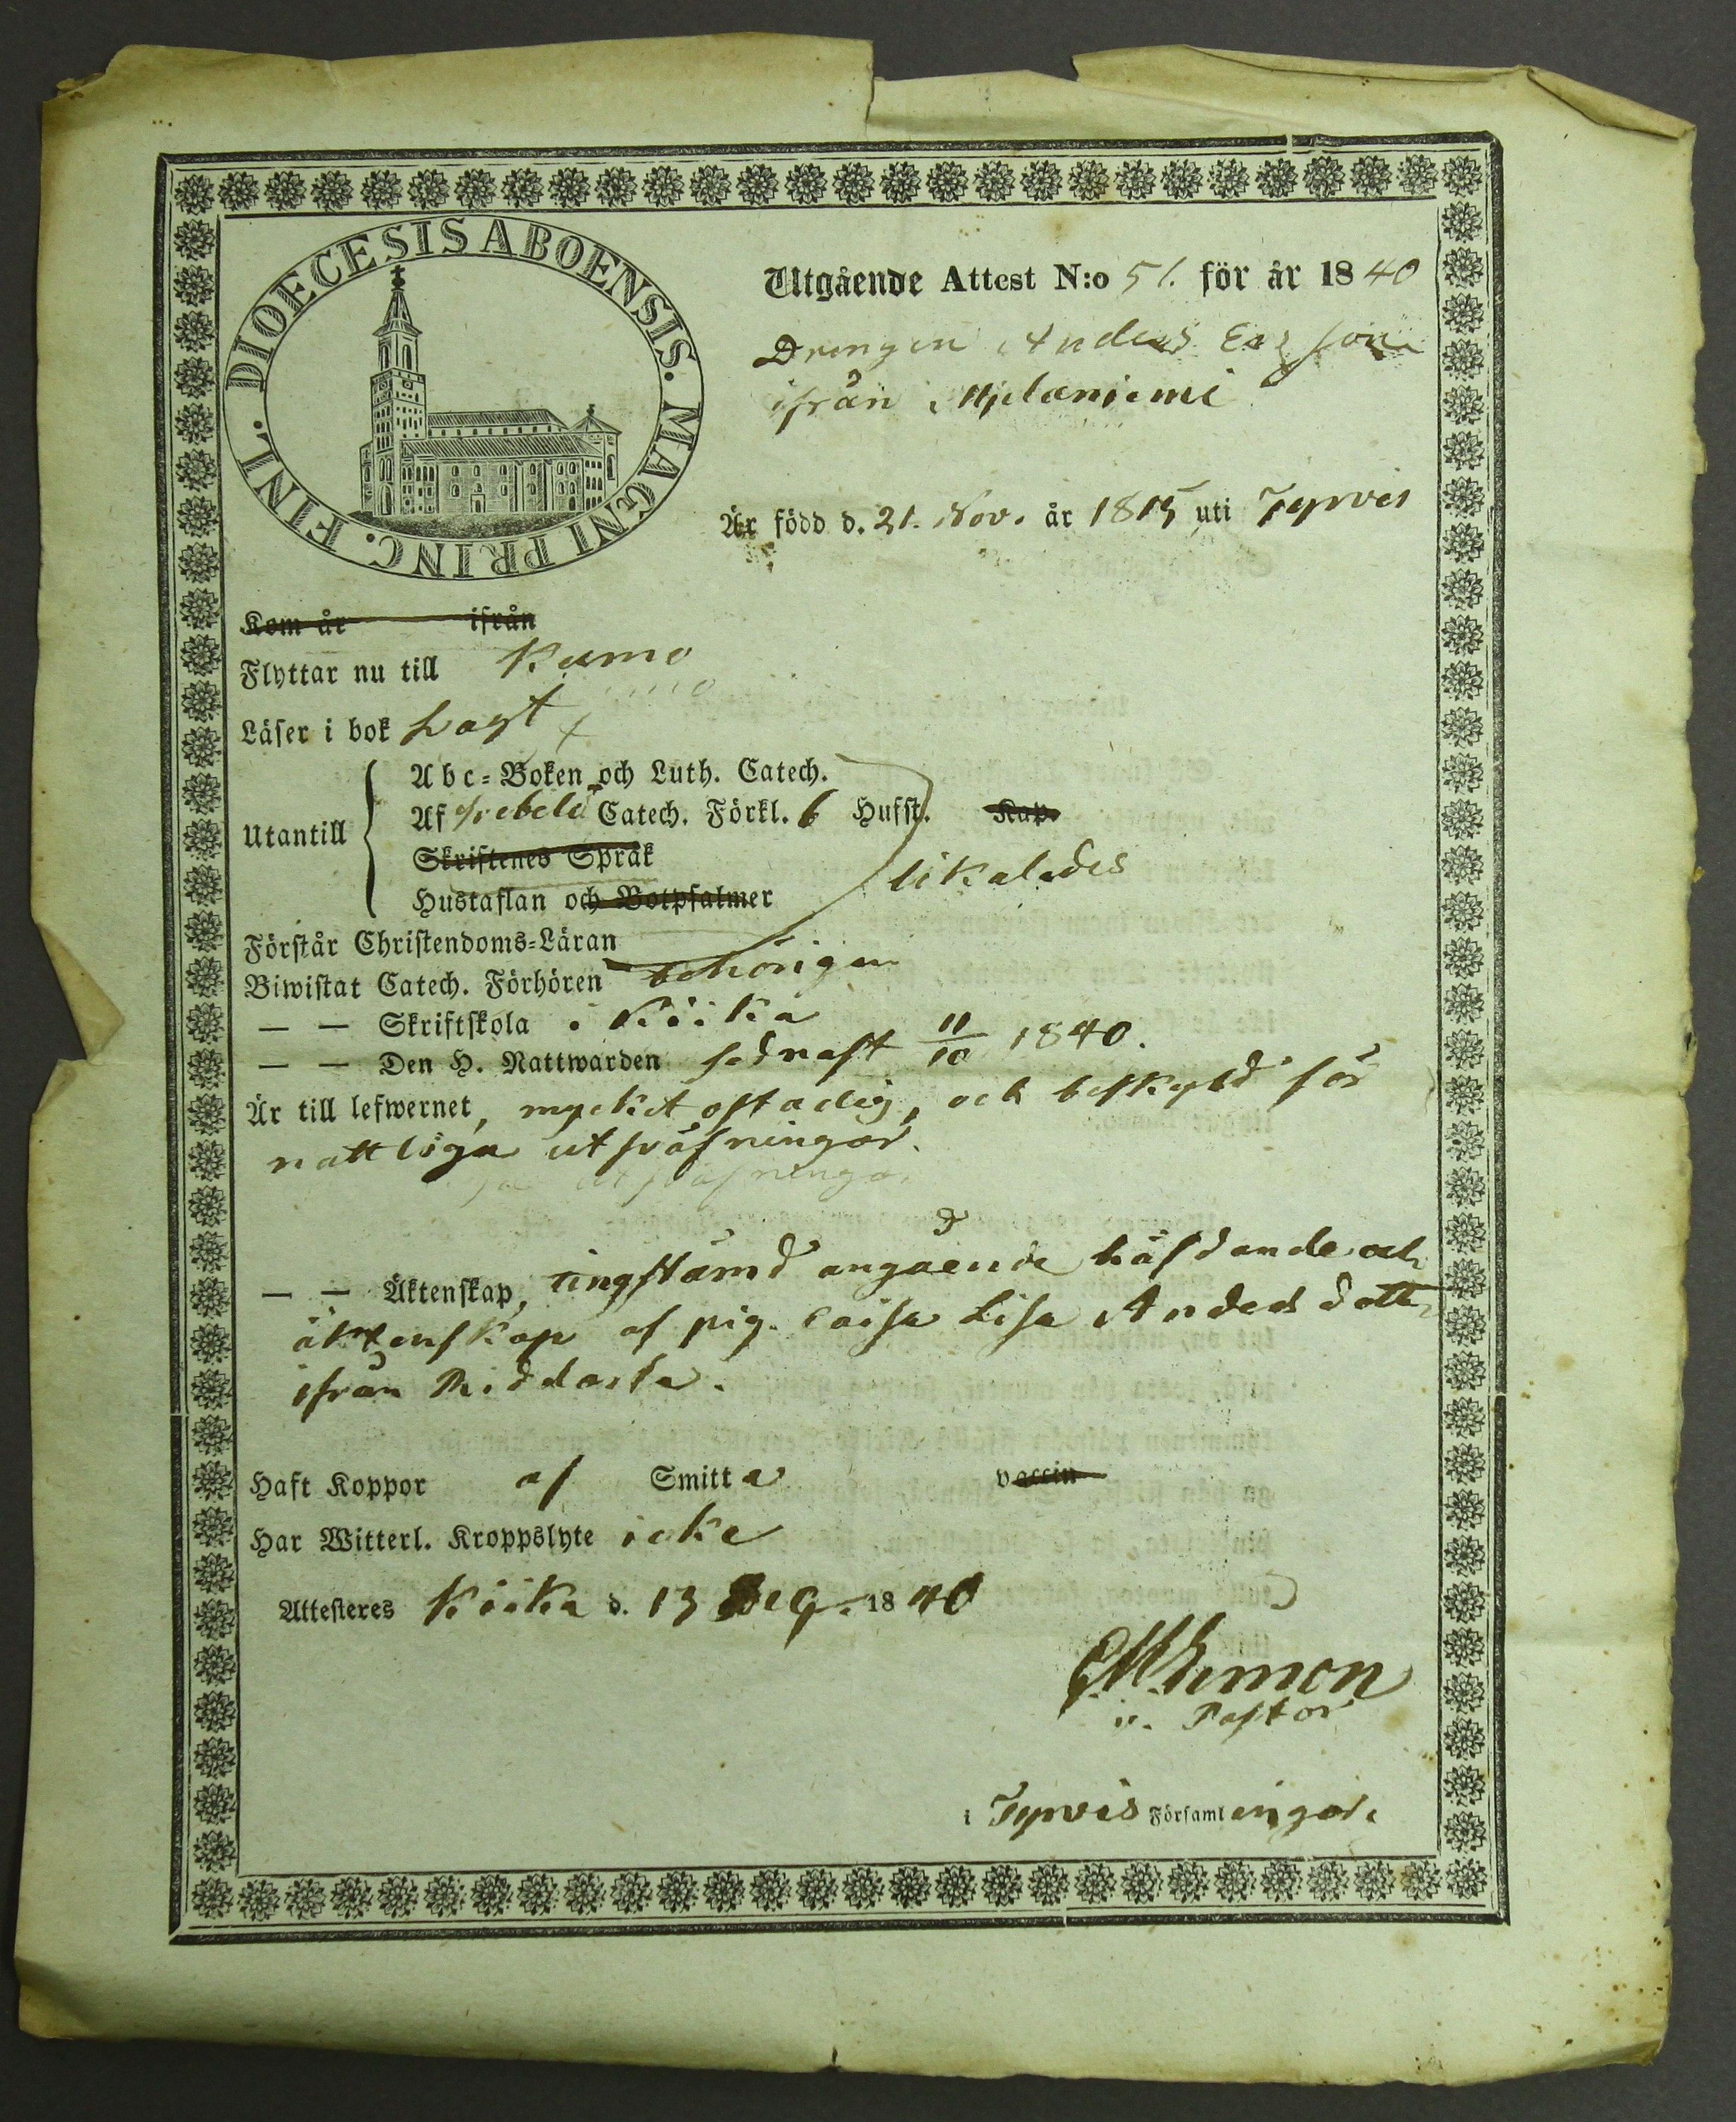 DIOECESIS ABOENSIS. MAGNI PRINC. FINL.
Utgående Attest N:o 51. för år 1840
Drengen Anders
ifrån
Är född d. 21. Nov. år 1815 uti Tyrvis
Kom år ifrån
Flyttar nu till Kumo
Läser i bok svagt
Abc-Boken och Luth. Catech.
Utantill Af Svebelii Catech. Förkl. 6 Hufst. Kap.
Skriftenes Språk
Hustaflan och Botpsalmer likaledes
Förstår Christendoms-Läran
Biwistat Catech. Förhören behörigen
— — Skriftskola i Kiika
— — Den H. Nattwarden sednast 11/10 1840.
Är till lefwernet, mycket ostadig, och beskyld för
nattliga utsväfningar.
— — Äktenskap, tingstämd angående häfdande och
äktenskap af pig. Caisa Lisa Andersdotter
ifrån
Haft Koppor af Smitta vaccin
Har Witterl. Kroppslyte icke
Attesteres Kiika d. 13 Dec. 1840
v. Pastor
i Tyrvis Församlingar.